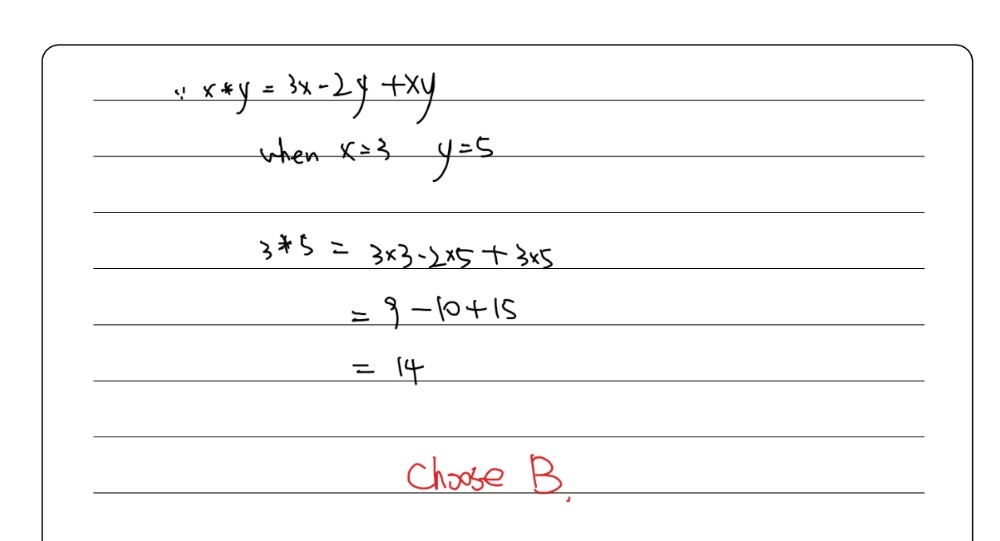 ∵ x*y = 3x-2y+xy
when x=3 y=5
3*5 = 3x3-2x5+3x5
= 9-10+15
= 14
Choose B.